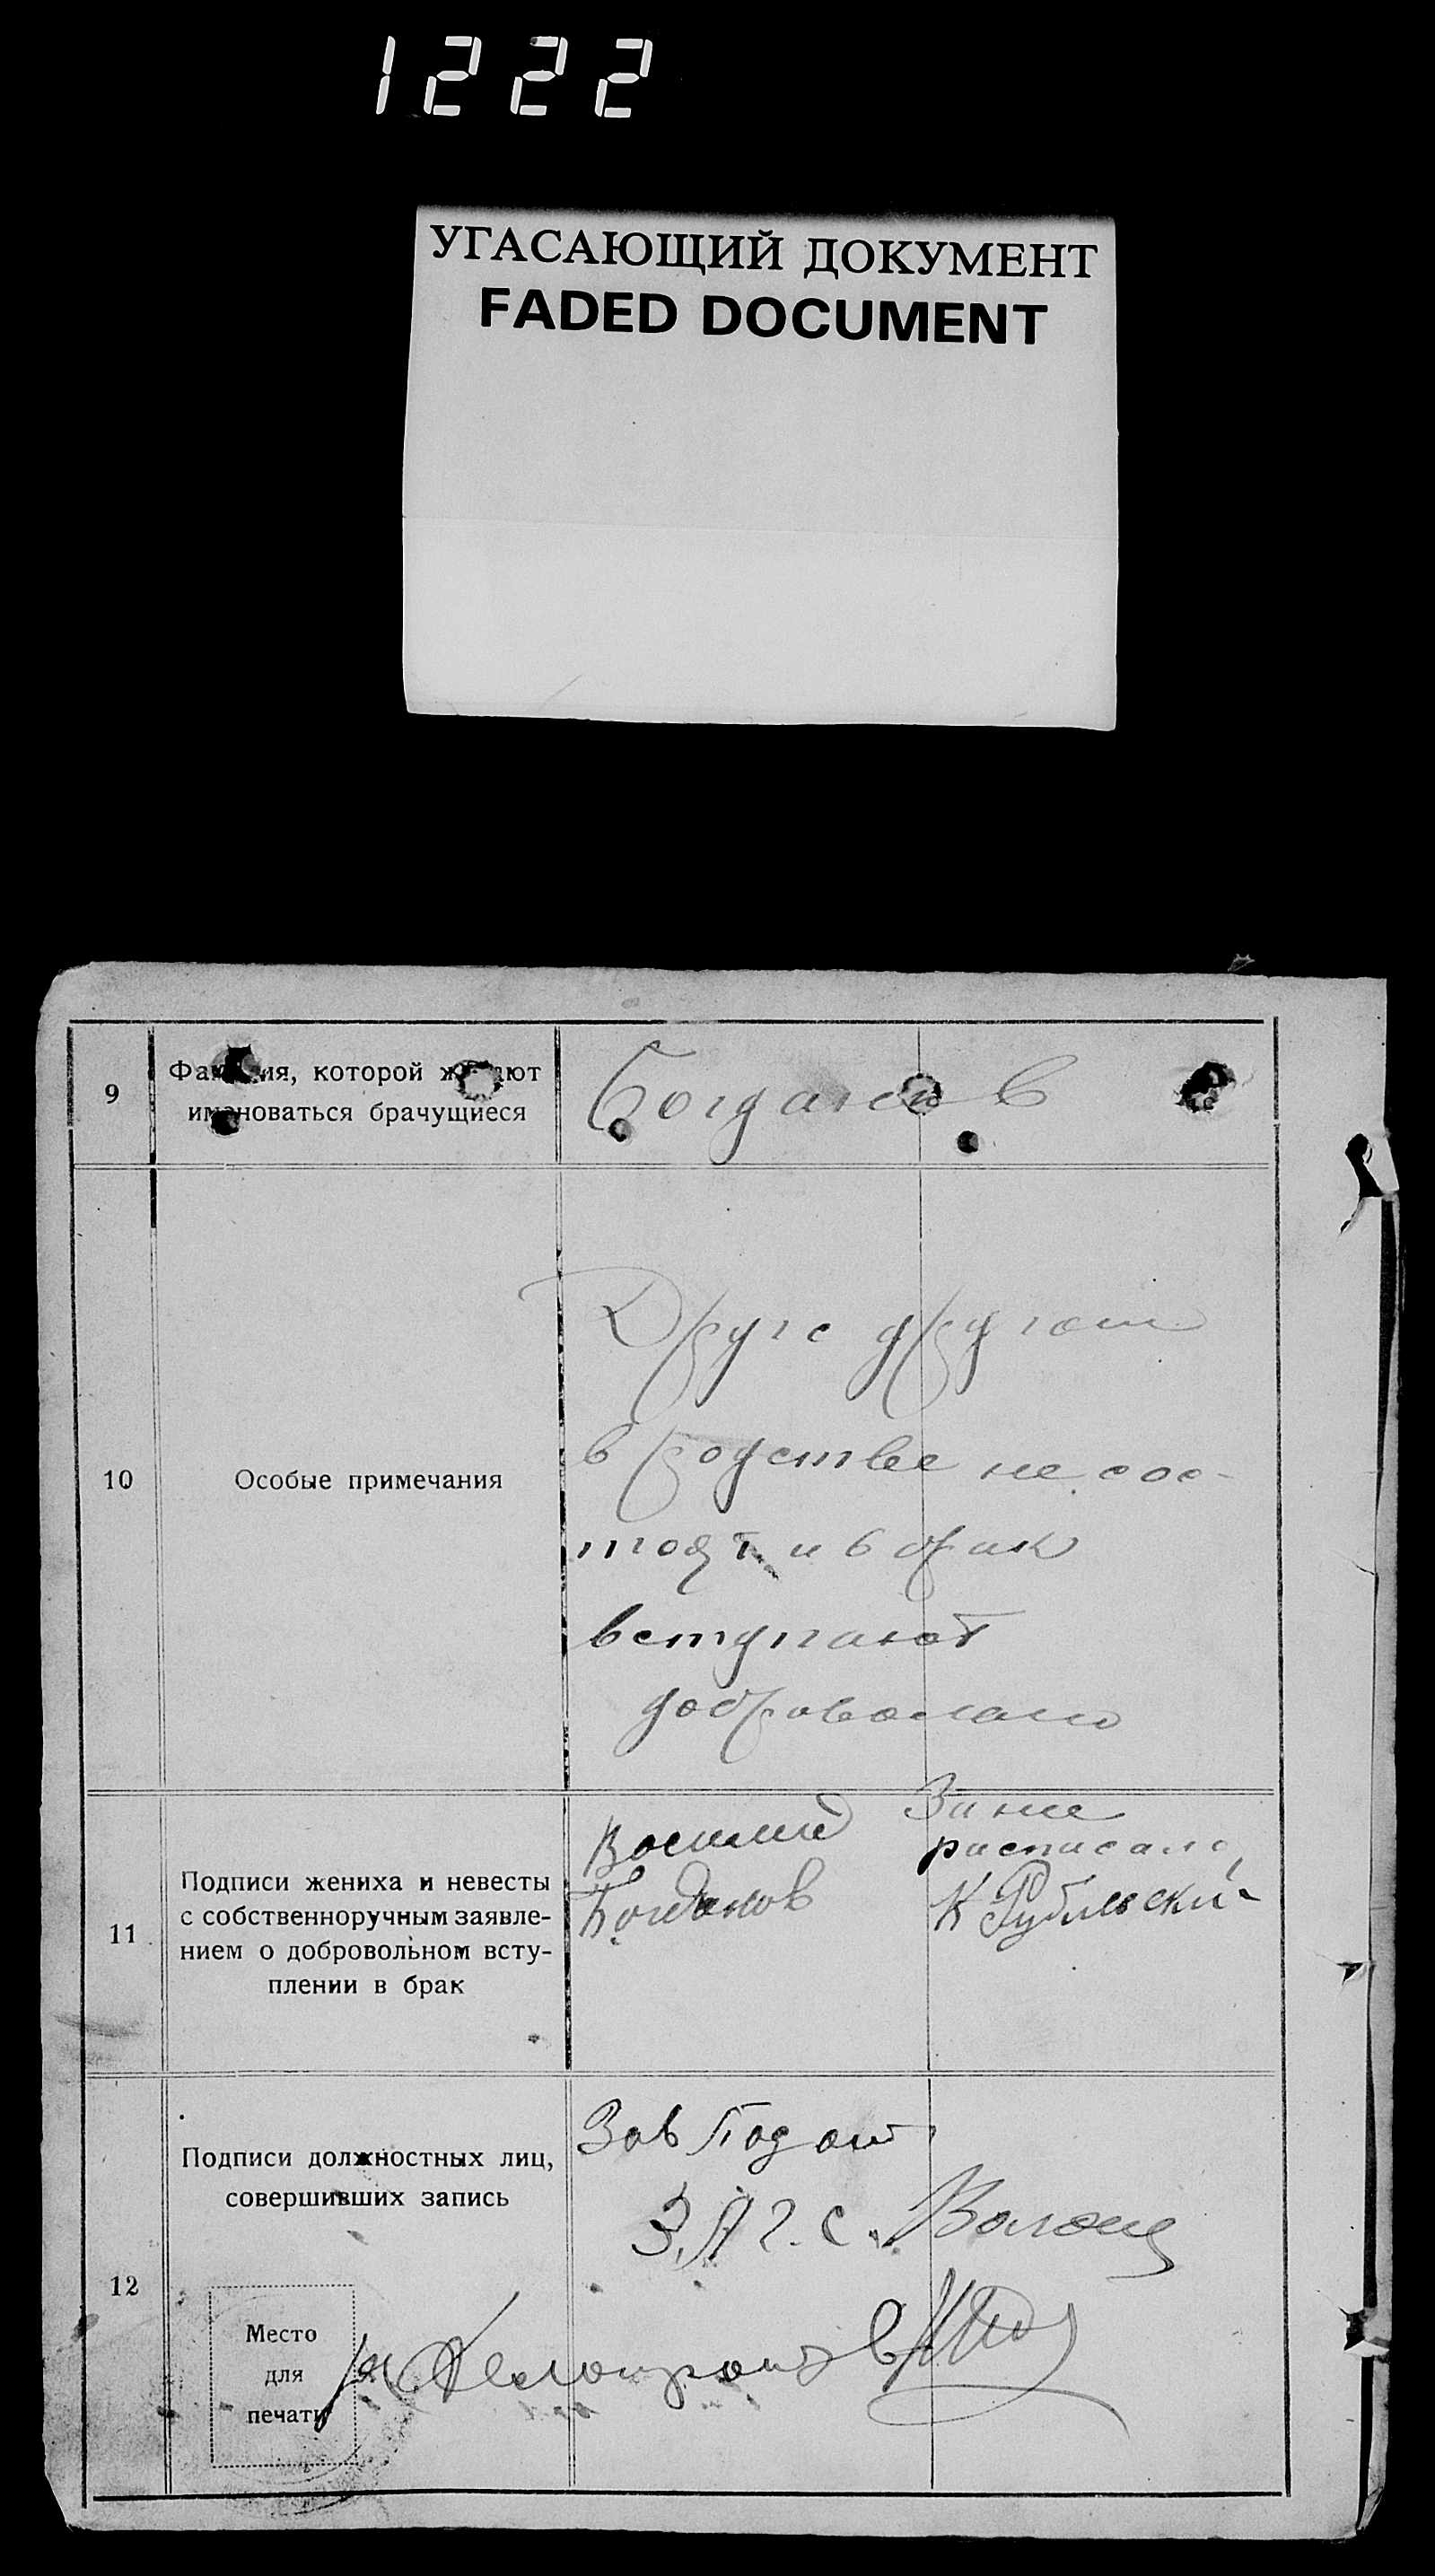 1222
УГАСАЮЩИЙ ДОКУМЕНТ
FADED DOCUMENT
9
Фамилия, которой желают
именоваться брачущиеся
Богданов
10
Особые примечания
Друг с другом
в родстве не сос-
тоят и в брак
вступают
добровольно
11
Подписи жениха и невесты
с собственноручным заявле-
нием о добровольном всту-
плении в брак
Василий
Богданов
За нее
расписался
К
12
Подписи должностных лиц,
совершивших запись
Место
для
печати
Зав Подот
З.А.Г.С.
Делопроизв